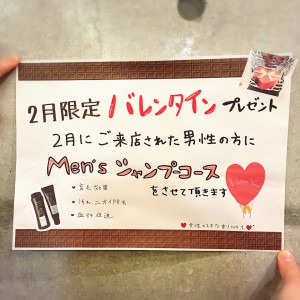 2月限定 バレンタイン プレゼント
2月にご来店された男性の方に
Men's シャンプーコース
をさせて頂きます
・育毛効果
・汚れ、ニオイ除去
・血行促進